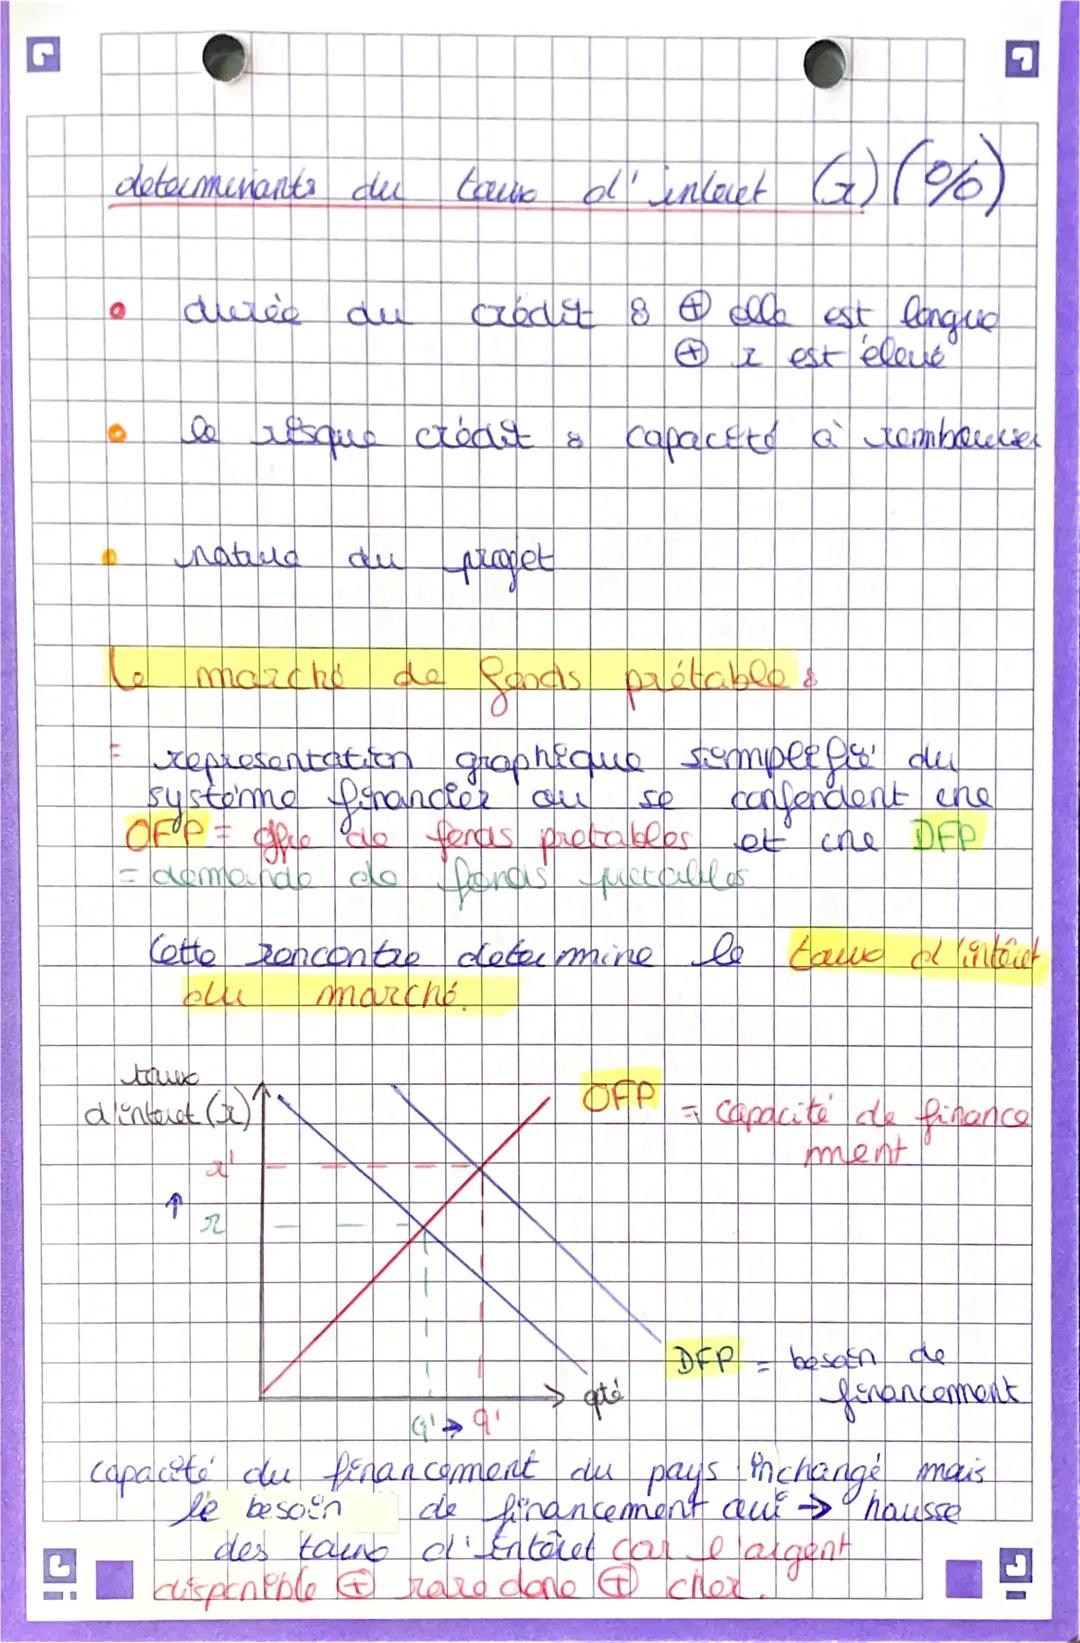 determinants du taux d'interet (r) (%)
durée du crédit : ⊕ elle est longue
⊕ r est élevé
le risque crédit : capacité à rembourser
nature du projet
Le marché de fonds prétable :
= representation graphique simplifié du
système financier ou se confondent une
OFP = offre de fonds pretables et une DFP
= demande de fonds pretables
Cette rencontre determine le taux d'intêret
du marché.
taux
d'interet (r)
OFP = capacité de finance
ment
r'
↑
r
DFP = besoin de
financement
qté
q' → q'
capacité du financement du pays inchangé mais
le besoin de financement oui → hausse
des taux d'intêret car l'argent
disponible ⊕ rare donc ⊕ cher.